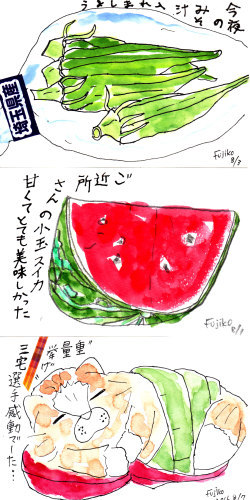 今夜の
みそ汁
入れましょう
埼玉県産
Fujiko
8/3
ご近所
さんの小玉スイカ
甘くてとても美味しかった
Fujiko
重量挙げ
三宅選手感動でーた…
Fujiko
8/7